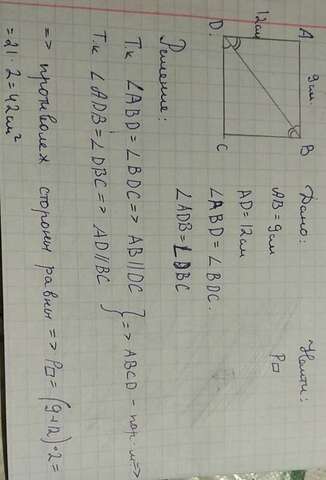 A
9см.
B
12см
D.
C
Дано:
AB = 9см
AD = 12см
∠ABD = ∠BDC.
∠ADB = ∠DBC
Найти:
P□
Решение:
Т.к ∠ABD = ∠BDC => AB || DC
Т.к ∠ADB = ∠DBC => AD || BC
} => ABCD - пар-м =>
=> противолеж стороны равны => P□ = (9+12)·2 =
= 21·2 = 42см²